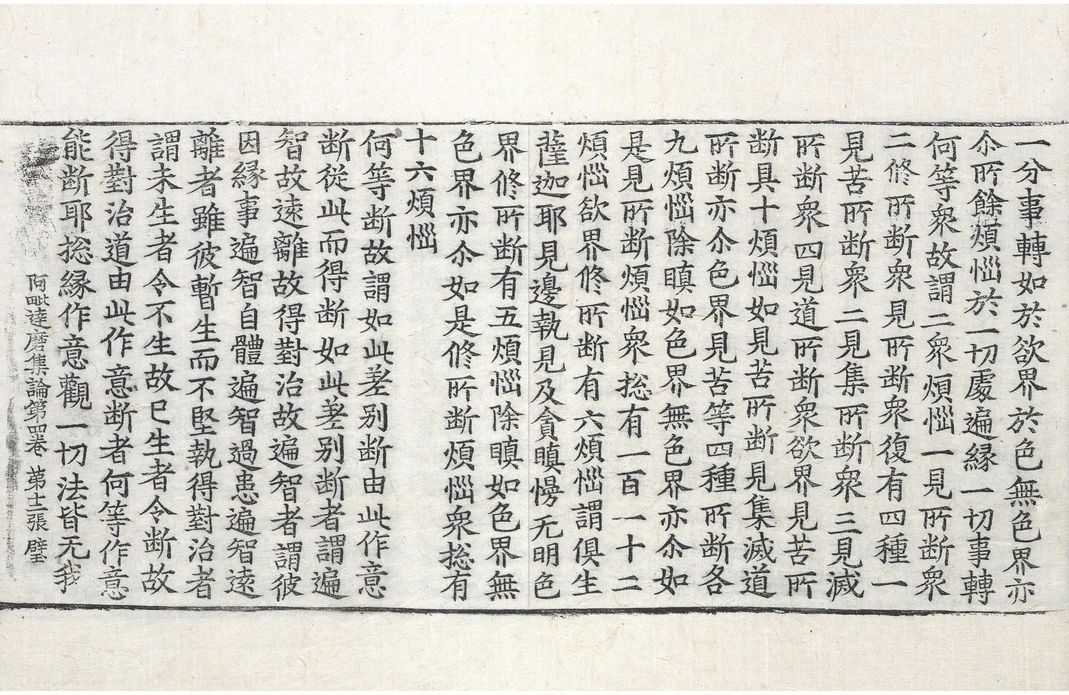 一分事轉如於欲界於色無色界亦
尒所餘煩惱於一切處遍緣一切事轉
何等衆故謂二衆煩惱一見所斷衆
二修所斷衆見所斷衆復有四種一
見苦所斷衆二見集所斷衆三見滅
所斷衆四見道所斷衆欲界見苦所
斷具十煩惱如見苦所斷見集滅道
所斷亦尒色界見苦等四種所斷各
九煩惱除瞋如色界無色界亦尒如
是見所斷煩惱衆揔有一百一十二
煩惱欲界修所斷有六煩惱謂俱生
薩迦耶見邊執見及貪瞋慢无明色
界修所斷有五煩惱除瞋如色界無
色界亦尒如是修所斷煩惱衆揔有
十六煩惱
何等斷故謂如此差别斷由此作意
斷從此而得斷如此差别斷者謂遍
智故遠離故得對治故遍智者謂彼
因緣事遍智自體遍智過患遍智遠
離者雖彼暫生而不堅執得對治者
謂未生者令不生故已生者令斷故
得對治道由此作意斷者何等作意
能斷耶揔緣作意觀一切法皆无我
阿毗達磨集論第四卷 第十二張 壁